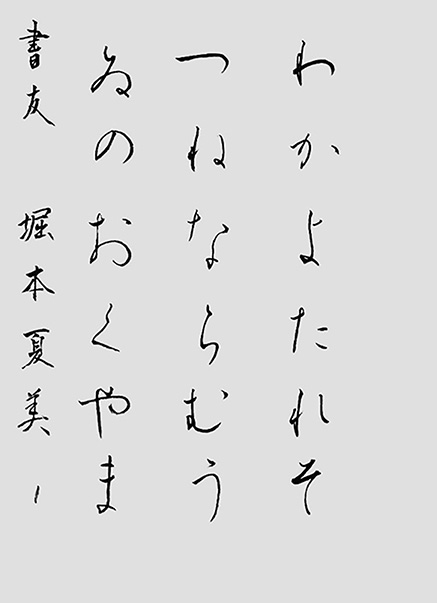 わかよたれそ
つねならむう
ゐのおくやま
書友 堀本夏美